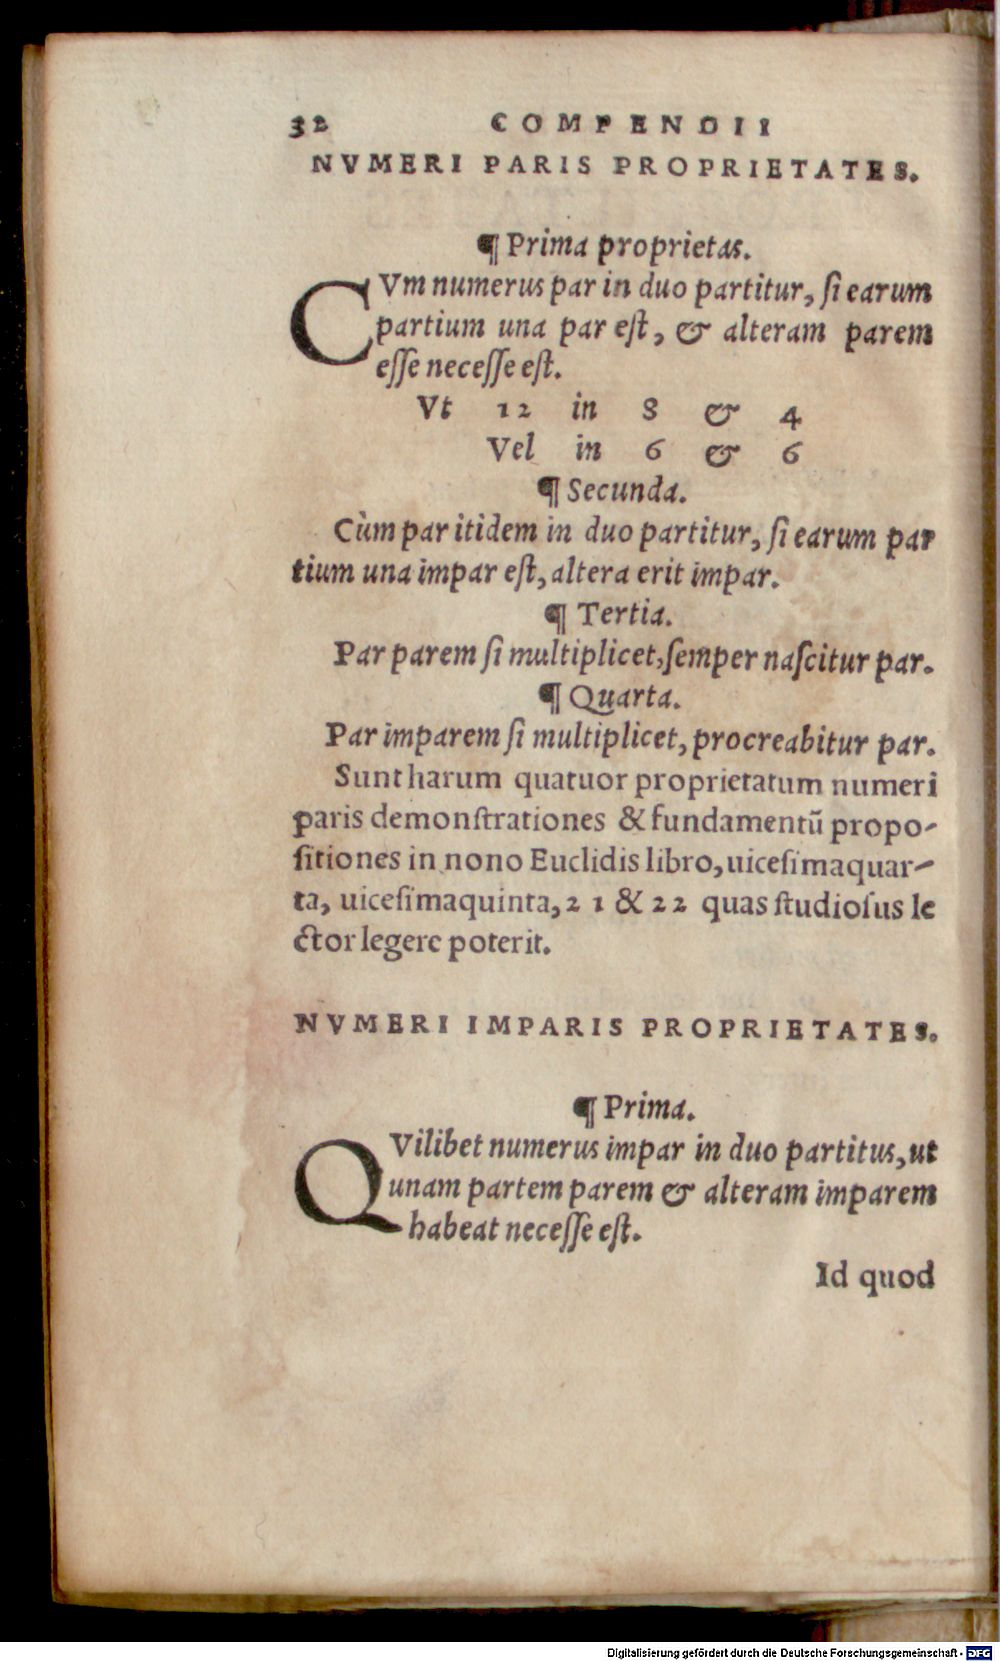 32 COMPENDII
NVMERI PARIS PROPRIETATES.
¶ Prima proprietas.
CVm numerus par in duo partitur, ſi earum
partium una par eſt, & alteram parem
eſſe neceſſe eſt.
Vt 12 in 8 & 4
Vel in 6 & 6
¶ Secunda.
Cùm par itidem in duo partitur, ſi earum par
tium una impar eſt, altera erit impar.
¶ Tertia.
Par parem ſi multiplicet, ſemper naſcitur par.
¶ Quarta.
Par imparem ſi multiplicet, procreabitur par.
Sunt harum quatuor proprietatum numeri
paris demonſtrationes & fundamentũ propo-
ſitiones in nono Euclidis libro, uiceſimaquar-
ta, uiceſimaquinta, 21 & 22 quas ſtudioſus le
ctor legere poterit.
NVMERI IMPARIS PROPRIETATES.
¶ Prima.
QVilibet numerus impar in duo partitus, ut
unam partem parem & alteram imparem
habeat neceſſe eſt.
Id quod
Digitalisierung gefördert durch die Deutsche Forschungsgemeinschaft - DFG